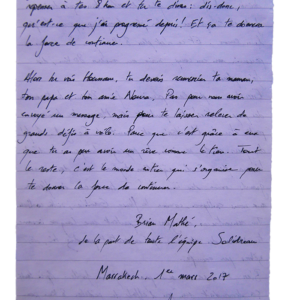 repenser à ton 8 km et tu te diras : dis-donc,
qu'est-ce que j'ai progressé depuis ! Et ça te donnera
la force de continuer.
Alors tu vois Hermann, tu devais remercier ta maman,
ton papa et ton amie Naoura. Pas pour nous avoir
envoyé un message, mais pour te laisser relever de
grands défis à vélo. Parce que c'est grâce à eux
que tu as pu avoir un rêve comme le tien. Tout
le reste, c'est le monde entier qui s'organise pour
te donner la force de continuer.
Brian Mathé,
de la part de toute l'équipe Solidream
Marrakech, 1er mars 2017